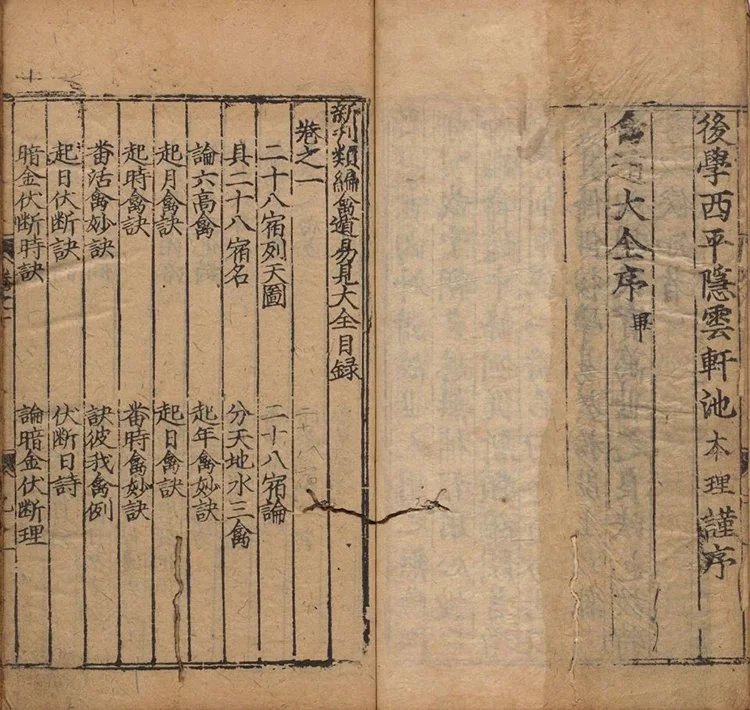 後學西平隱雲軒池本理謹序
禽遁大全序畢
新刋類編禽遁易見大全目録
卷之一
二十八宿列天圖 二十八宿論
具二十八宿名 分天地水三禽
論六髙禽 起年禽妙訣
起月禽訣 起日禽訣
起時禽訣 畨時禽妙訣
畨活禽妙訣 訣彼我禽例
起日伏斷訣 伏斷日詩
暗金伏斷時訣 論暗金伏斷理